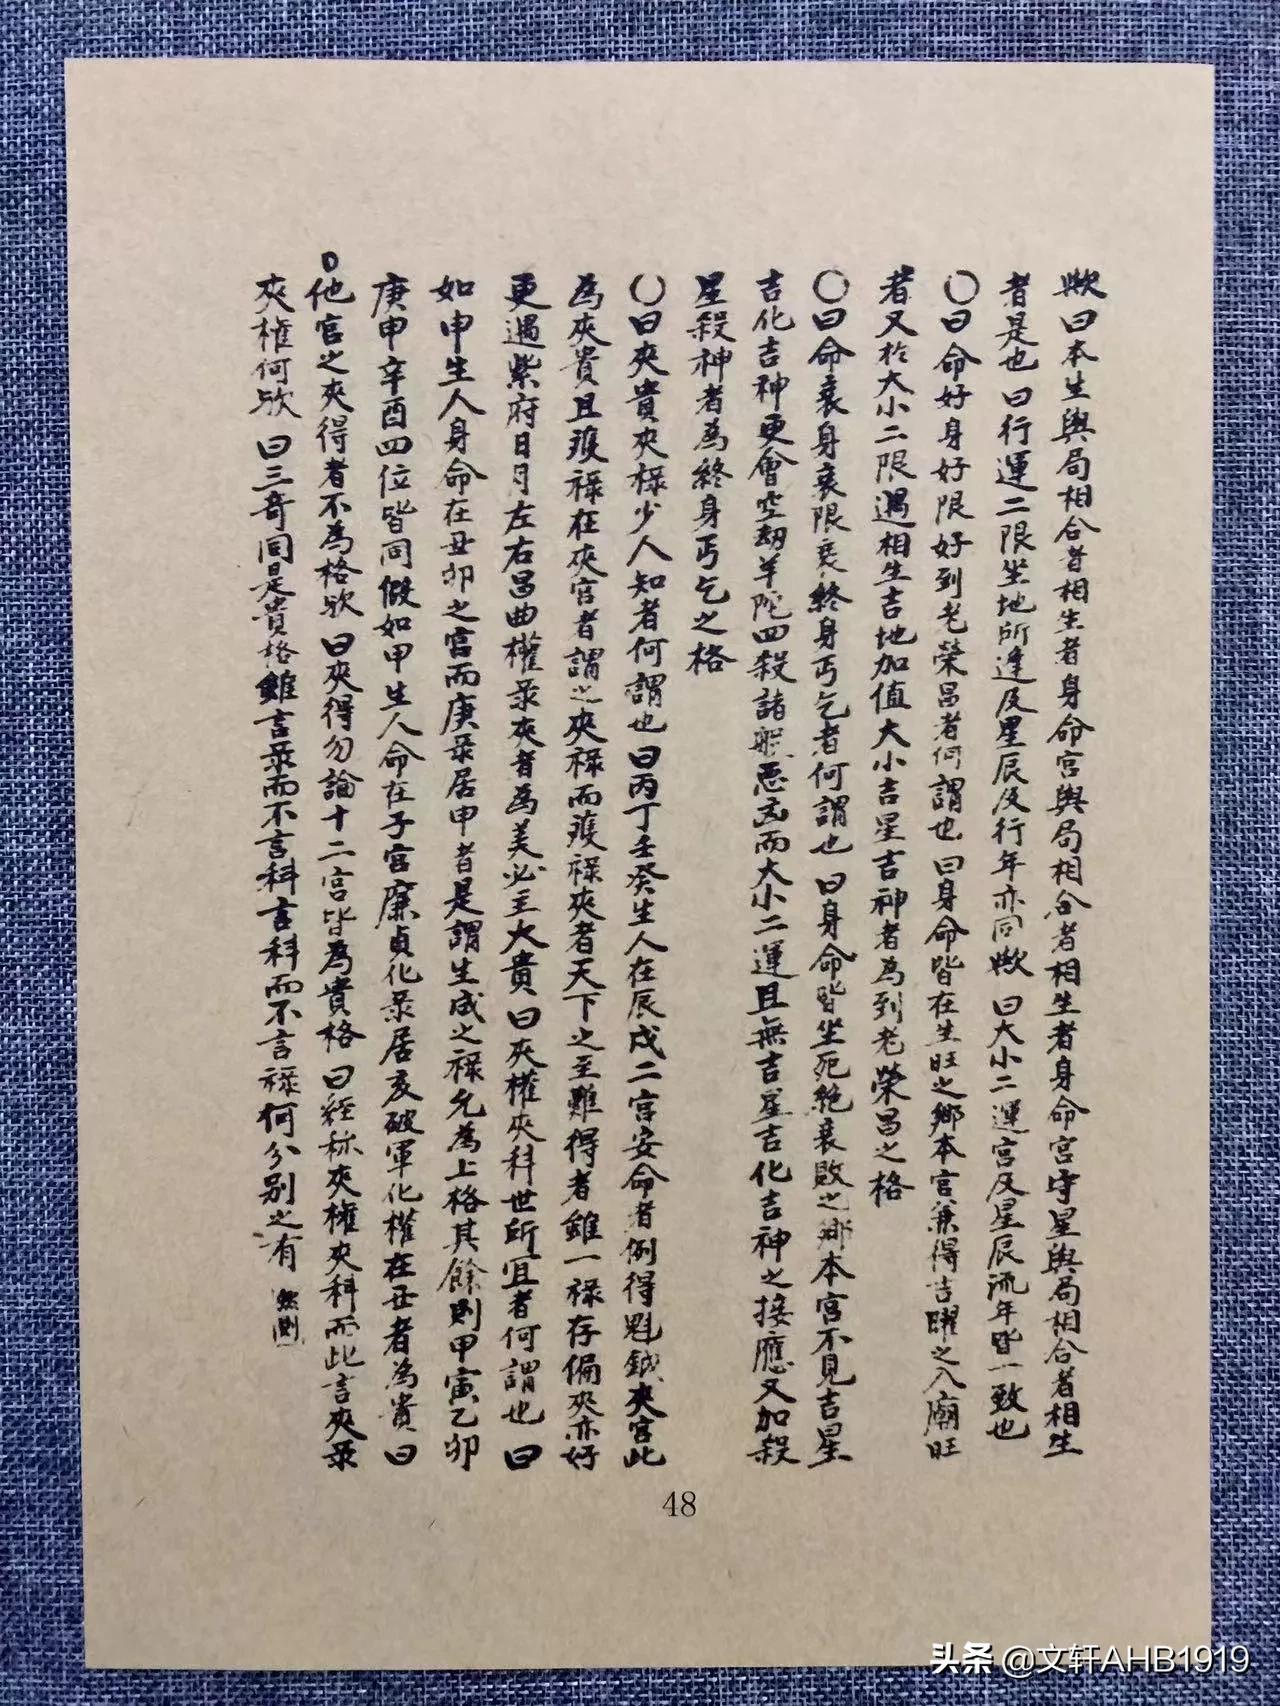 歟曰本生與局相合者相生者身命宮與局相合者相生者身命宮守星與局相合者相生
者是也曰行運二限坐地所逢及星辰及行年亦同歟曰大小二運宮及星辰流年皆一致也
〇曰命好身好限好到老榮昌者何謂也曰身命皆在生旺之鄉本宮兼得吉曜之入廟旺
者又於大小二限遇相生吉地加值大小吉星吉神者為到老榮昌之格
〇曰命衰身衰限衰終身丐乞者何謂也曰身命皆坐死絕衰敗之鄉本宮不見吉星
吉化吉神更會空劫羊陀四殺諸般惡凶而大小二運且無吉星吉化吉神之接應又加殺
星殺神者為終身丐乞之格
〇曰夾貴夾祿少人知者何謂也曰丙丁壬癸生人在辰戌二宮安命者例得魁鉞夾宮此
為夾貴且雙祿在夾宮者謂之夾祿而雙祿夾者天下之至難得者雖一祿存偏夾亦好
更遇紫府日月左右昌曲權彔夾者為美必主大貴曰夾權夾科世所宜者何謂也曰
如申生人身命在丑卯之宮而庚彔居申者是謂生成之祿允為上格其餘則甲寅乙卯
庚申辛酉四位皆同假如甲生人命在子宮廉貞化彔居亥破軍化權在丑者為貴曰
〇他宮之夾得者不為格欤曰夾得勿論十二宮皆為貴格曰經称夾權夾科而此言夾彔
夾權何欤曰三奇同是貴格雖言彔而不言科言科而不言祿何分別之有 然則
48
头条 @文轩AHB1919